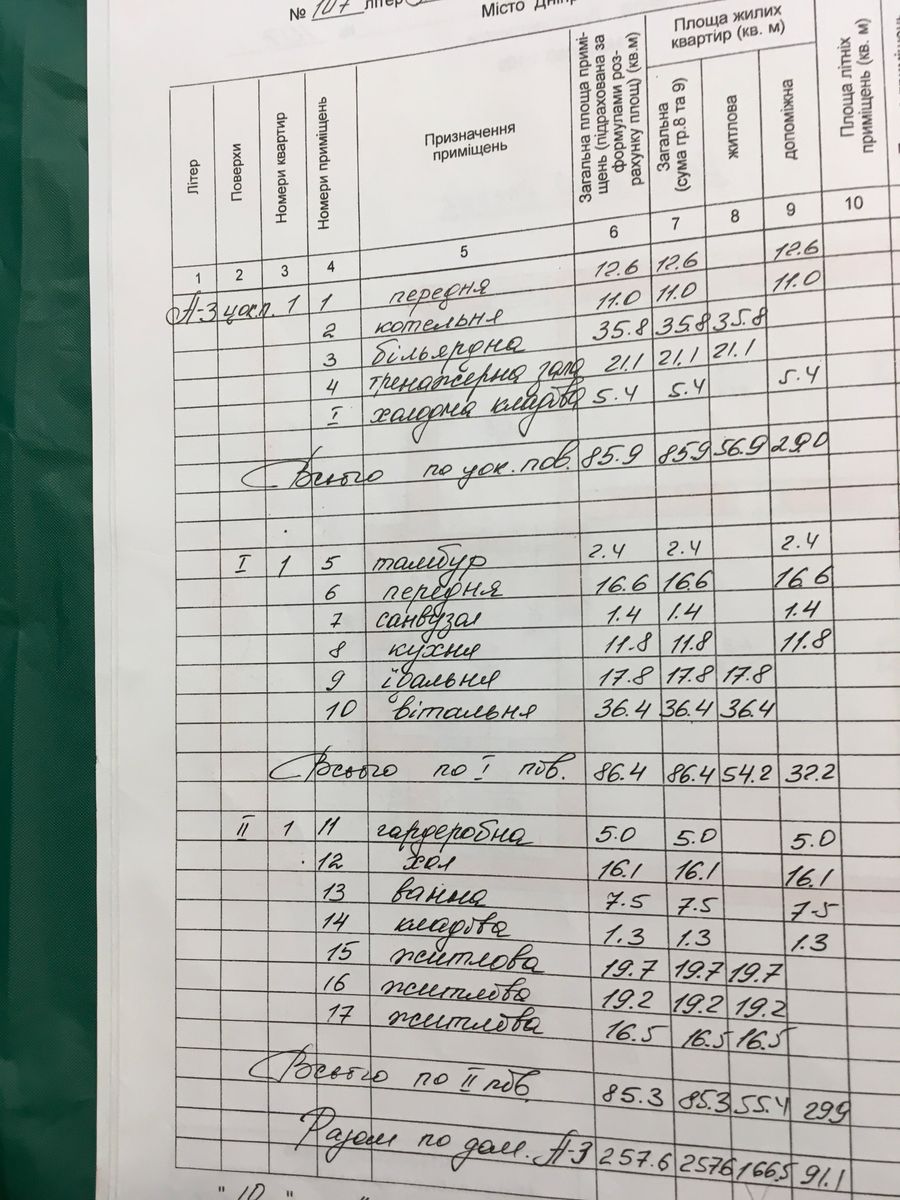 № 107 літер
Місто Дніп
Літер
Поверхи
Номери квартир
Номери приміщень
Призначення приміщень
Загальна площа приміщень (підрахована за формулами розрахунку площ) (кв.м)
Площа жилих квартир (кв. м)
Загальна (сума гр.8 та 9)
житлова
допоміжна
Площа літніх приміщень (кв. м)
1 2 3 4 5 6 7 8 9 10
А-3 цок.п. 1 1 передня 12.6 12.6 12.6
2 котельня 11.0 11.0 11.0
3 більярдна 35.8 35.8 35.8
4 тренажерна зала 21.1 21.1 21.1
I холодна кладова 5.4 5.4 5.4
Всього по цок. пов. 85.9 85.9 56.9 29.0
I 1 5 тамбур 2.4 2.4 2.4
6 передня 16.6 16.6 16.6
7 санвузол 1.4 1.4 1.4
8 кухня 11.8 11.8 11.8
9 їдальня 17.8 17.8 17.8
10 вітальня 36.4 36.4 36.4
Всього по I пов. 86.4 86.4 54.2 32.2
II 1 11 гардеробна 5.0 5.0 5.0
12 хол 16.1 16.1 16.1
13 ванна 7.5 7.5 7.5
14 кладова 1.3 1.3 1.3
15 житлова 19.7 19.7 19.7
16 житлова 19.2 19.2 19.2
17 житлова 16.5 16.5 16.5
Всього по II пов. 85.3 85.3 55.4 299
Разом по дом. А-3 257.6 2576 166.5 91.1
" 10 "